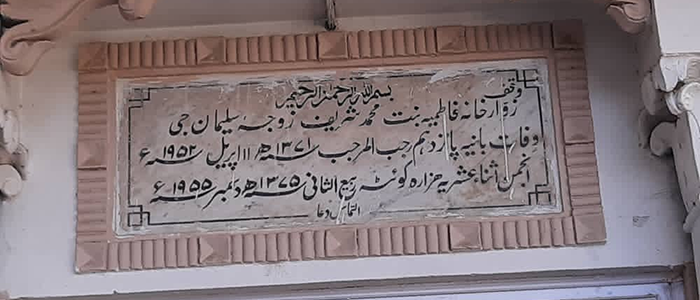 بسم اللہ الرحمن الرحیم
وقف
زوار خانہ فاطمیہ بنت محمد شریف زوجہ سلیمان جی
وفات بانیہ یازدہم رجب المرجب ۱۳۷۱ھ ۱۱ اپریل ۱۹۵۲ء
انجمن اثنا عشریہ ہزارہ کوئٹہ ربیع الثانی ۱۳۷۵ھ دسمبر ۱۹۵۵ء
التماس دعا